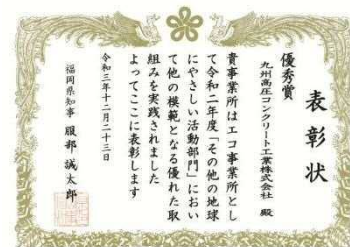 表彰状
優秀賞
九州高圧コンクリート工業株式会社 殿
貴事業所はエコ事業所とし
て令和二年度「その他の地球
にやさしい活動部門」におい
て他の模範となる優れた取
組みを実践されました
よってここに表彰します
令和三年十二月二十三日
福岡県知事 服部誠太郎